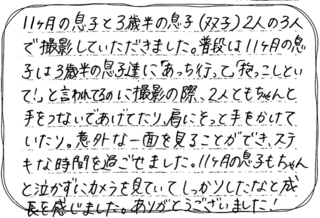 11ヶ月の息子と3歳半の息子(双子)2人の3人
で撮影していただきました。普段は11ヶ月の息
子は3歳半の息子達に「あっち行って」「抱っこしないで
!」と言われてるのに撮影の際、2人ともちゃんと
手をつないであげてたり、肩にそっと手をかけて
いたり。意外な一面を見ることができ、ステ
キな時間を過ごせました。11ヶ月の息子もちゃん
と泣かずにカメラを見ていてしっかりしたなと成
長を感じました。ありがとうございました!